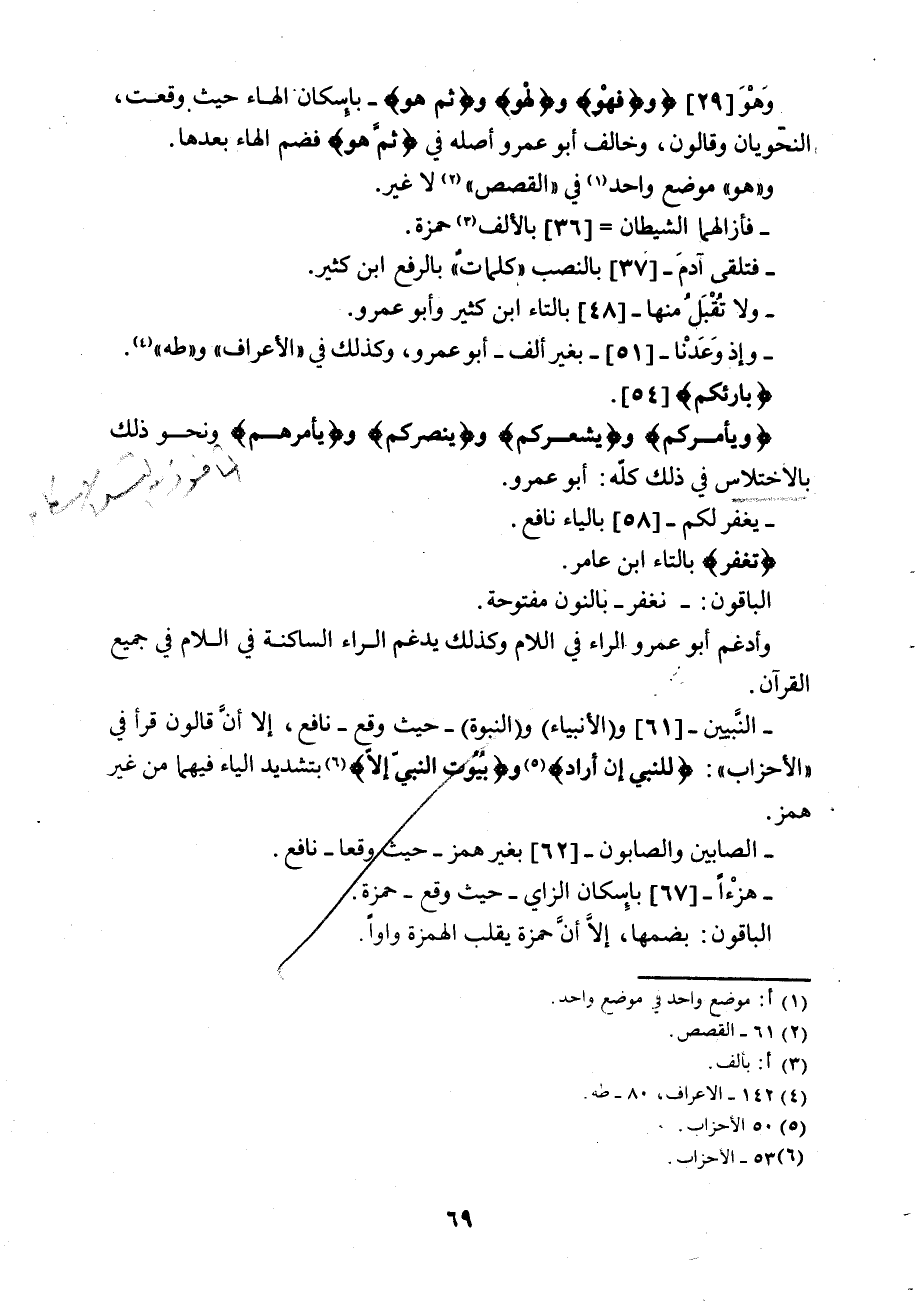 وَهْوَ [٢٩] ﴿و﴿فهْو﴾ و﴿لهْو﴾ و﴿ثم هو﴾ ـ بإسكان الهاء حيث وقعت،
النحويان وقالون، وخالف أبو عمرو أصله في ﴿ثمَّ هو﴾ فضم الهاء بعدها.
و«هو» موضع واحد(١) في «القصص»(٢) لا غير.
ـ فأزالهما الشيطان = [٣٦] بالألف(٣) حمزة.
ـ فتلقى آدمَ ـ [٣٧] بالنصب «كلماتٌ» بالرفع ابن كثير.
ـ ولا تُقْبَلُ منها ـ [٤٨] بالتاء ابن كثير وأبو عمرو.
ـ وإذ وَعَدْنا ـ [٥١] ـ بغير ألف ـ أبو عمرو، وكذلك في «الأعراف» و«طه»(٤).
﴿بارئكم﴾ [٥٤].
﴿ويأمركم﴾ و﴿يشعركم﴾ و﴿ينصركم﴾ و﴿يأمرهم﴾ ونحو ذلك
بالاختلاس في ذلك كلّه: أبو عمرو.
ـ يغفر لكم ـ [٥٨] بالياء نافع.
﴿تغفر﴾ بالتاء ابن عامر.
الباقون: ـ نغفر ـ بالنون مفتوحة.
وأدغم أبو عمرو الراء في اللام وكذلك يدغم الراء الساكنة في اللام في جميع
القرآن.
ـ النَّبيين ـ [٦١] و(الأنبياء) و(النبوة) ـ حيث وقع ـ نافع، إلا أنَّ قالون قرأ في
«الأحزاب»: ﴿للنبي إن أراد﴾(٥) و﴿بُيُوت النبيّ إلاّ﴾(٦) بتشديد الياء فيهما من غير
همز.
ـ الصابين والصابون ـ [٦٢] بغير همز ـ حيث وقعا ـ نافع.
ـ هزْءاً ـ [٦٧] بإسكان الزاي ـ حيث وقع ـ حمزة.
الباقون: بضمها، إلاَّ أنَّ حمزة يقلب الهمزة واواً.
(١) أ: موضع واحد في موضع واحد.
(٢) ٦١ ـ القصص.
(٣) أ: بألف.
(٤) ١٤٢ ـ الاعراف، ٨٠ ـ طه.
(٥) ٥٠ الأحزاب.
(٦) ٥٣ ـ الأحزاب.
٦٩